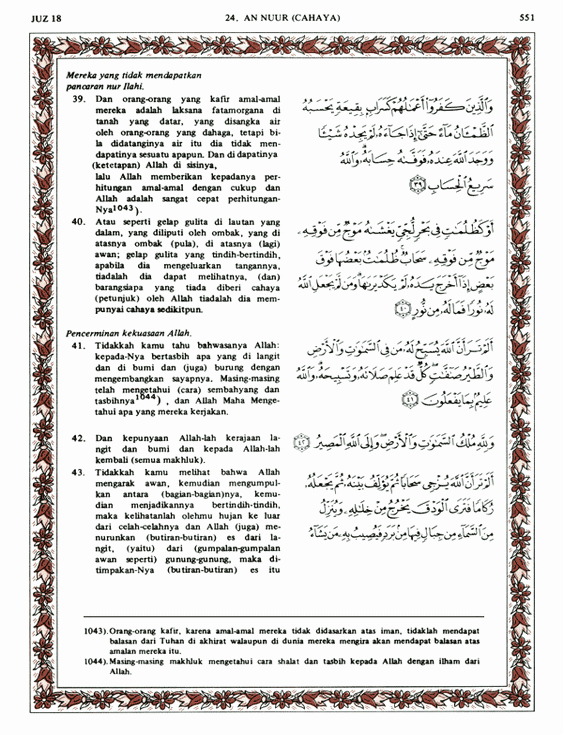 JUZ 18
24. AN NUUR (CAHAYA)
551
Mereka yang tidak mendapatkan
pancaran nur Ilahi.
39. Dan orang-orang yang kafir amal-amal
mereka adalah laksana fatamorgana di
tanah yang datar, yang disangka air
oleh orang-orang yang dahaga, tetapi bi-
la didatanginya air itu dia tidak men-
dapatinya sesuatu apapun. Dan di dapatinya
(ketetapan) Allah di sisinya,
lalu Allah memberikan kepadanya per-
hitungan amal-amal dengan cukup dan
Allah adalah sangat cepat perhitungan-
Nya1043).
40. Atau seperti gelap gulita di lautan yang
dalam, yang diliputi oleh ombak, yang di
atasnya ombak (pula), di atasnya (lagi)
awan; gelap gulita yang tindih-bertindih,
apabila dia mengeluarkan tangannya,
tiadalah dia dapat melihatnya, (dan)
barangsiapa yang tiada diberi cahaya
(petunjuk) oleh Allah tiadalah dia mem-
punyai cahaya sedikitpun.
Pencerminan kekuasaan Allah.
41. Tidakkah kamu tahu bahwasanya Allah:
kepada-Nya bertasbih apa yang di langit
dan di bumi dan (juga) burung dengan
mengembangkan sayapnya. Masing-masing
telah mengetahui (cara) sembahyang dan
tasbihnya1044) , dan Allah Maha Menge-
tahui apa yang mereka kerjakan.
42. Dan kepunyaan Allah-lah kerajaan la-
ngit dan bumi dan kepada Allah-lah
kembali (semua makhluk).
43. Tidakkah kamu melihat bahwa Allah
mengarak awan, kemudian mengumpul-
kan antara (bagian-bagian)nya, kemu-
dian menjadikannya bertindih-tindih,
maka kelihatanlah olehmu hujan ke luar
dari celah-celahnya dan Allah (juga) me-
nurunkan (butiran-butiran) es dari la-
ngit, (yaitu) dari (gumpalan-gumpalan
awan seperti) gunung-gunung, maka di-
timpakan-Nya (butiran-butiran) es itu
وَالَّذِينَ كَفَرُوا أَعْمَالُهُمْ كَسَرَابٍ بِقِيعَةٍ يَحْسَبُهُ
الظَّمْآنُ مَاءً حَتَّى إِذَا جَاءَهُ لَمْ يَجِدْهُ شَيْئًا
وَوَجَدَ اللَّهَ عِنْدَهُ فَوَفَّاهُ حِسَابَهُ وَاللَّهُ
سَرِيعُ الْحِسَابِ ﴿٣٩﴾
أَوْ كَظُلُمَاتٍ فِي بَحْرٍ لُجِّيٍّ يَغْشَاهُ مَوْجٌ مِنْ فَوْقِهِ
مَوْجٌ مِنْ فَوْقِهِ سَحَابٌ ظُلُمَاتٌ بَعْضُهَا فَوْقَ
بَعْضٍ إِذَا أَخْرَجَ يَدَهُ لَمْ يَكَدْ يَرَاهَا وَمَنْ لَمْ يَجْعَلِ اللَّهُ
لَهُ نُورًا فَمَا لَهُ مِنْ نُورٍ ﴿٤٠﴾
أَلَمْ تَرَ أَنَّ اللَّهَ يُسَبِّحُ لَهُ مَنْ فِي السَّمَاوَاتِ وَالْأَرْضِ
وَالطَّيْرُ صَافَّاتٍ كُلٌّ قَدْ عَلِمَ صَلَاتَهُ وَتَسْبِيحَهُ وَاللَّهُ
عَلِيمٌ بِمَا يَفْعَلُونَ ﴿٤١﴾
وَلِلَّهِ مُلْكُ السَّمَاوَاتِ وَالْأَرْضِ وَإِلَى اللَّهِ الْمَصِيرُ ﴿٤٢﴾
أَلَمْ تَرَ أَنَّ اللَّهَ يُزْجِي سَحَابًا ثُمَّ يُؤَلِّفُ بَيْنَهُ ثُمَّ يَجْعَلُهُ
رُكَامًا فَتَرَى الْوَدْقَ يَخْرُجُ مِنْ خِلَالِهِ وَيُنَزِّلُ
مِنَ السَّمَاءِ مِنْ جِبَالٍ فِيهَا مِنْ بَرَدٍ فَيُصِيبُ بِهِ مَنْ يَشَاءُ
1043). Orang-orang kafir, karena amal-amal mereka tidak didasarkan atas iman, tidaklah mendapat
balasan dari Tuhan di akhirat walaupun di dunia mereka mengira akan mendapat balasan atas
amalan mereka itu.
1044). Masing-masing makhluk mengetahui cara shalat dan tasbih kepada Allah dengan ilham dari
Allah.